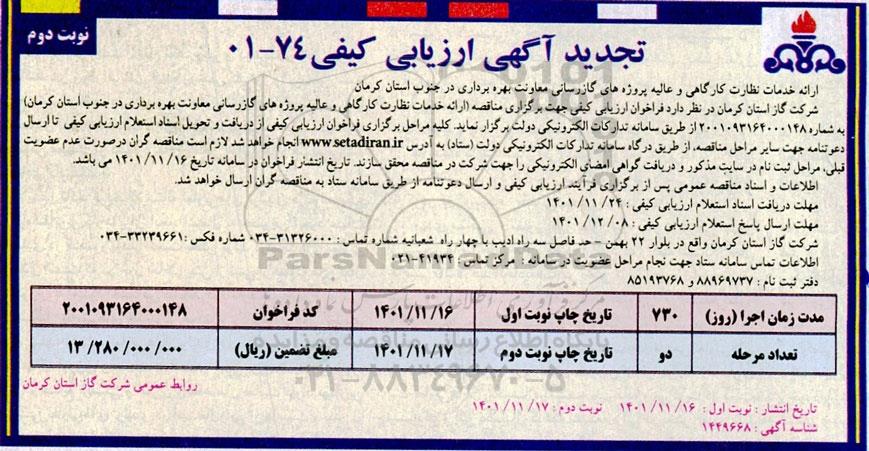 نوبت دوم
تجدید آگهی ارزیابی کیفی ۷۴-۰۱
ارائه خدمات نظارت کارگاهی و عالیه پروژه های گازرسانی معاونت بهره برداری در جنوب استان کرمان
شرکت گاز استان کرمان در نظر دارد فراخوان ارزیابی کیفی جهت برگزاری مناقصه (ارائه خدمات نظارت کارگاهی و عالیه پروژه های گازرسانی معاونت بهره برداری در جنوب استان کرمان)
به شماره ۲۰۰۱۰۹۳۱۶۴۰۰۰۱۴۸ از طریق سامانه تدارکات الکترونیکی دولت برگزار نماید. کلیه مراحل برگزاری فراخوان ارزیابی کیفی از دریافت و تحویل اسناد استعلام ارزیابی کیفی تا ارسال
دعوتنامه جهت سایر مراحل مناقصه، از طریق درگاه سامانه تدارکات الکترونیکی دولت (ستاد) به آدرس www.setadiran.ir انجام خواهد شد لازم است مناقصه گران درصورت عدم عضویت
قبلی، مراحل ثبت نام در سایت مذکور و دریافت گواهی امضای الکترونیکی را جهت شرکت در مناقصه محقق سازند. تاریخ انتشار فراخوان در سامانه تاریخ ۱۴۰۱/۱۱/۱۶ می باشد.
اطلاعات و اسناد مناقصه عمومی پس از برگزاری فرآیند ارزیابی کیفی و ارسال دعوتنامه از طریق سامانه ستاد به مناقصه گران ارسال خواهد شد.
مهلت دریافت اسناد استعلام ارزیابی کیفی : ۱۴۰۱/۱۱/۲۴
مهلت ارسال پاسخ استعلام ارزیابی کیفی : ۱۴۰۱/۱۲/۰۸
شرکت گاز استان کرمان واقع در بلوار ۲۲ بهمن - حد فاصل سه راه ادیب با چهار راه شعبانیه شماره تماس : ۳۱۳۲۶۰۰۰-۰۳۴ شماره فکس :۳۳۲۳۹۶۶۱-۰۳۴
اطلاعات تماس سامانه ستاد جهت نجام مراحل عضویت در سامانه : مرکز تماس : ۴۱۹۳۴-۰۲۱
دفتر ثبت نام : ۸۸۹۶۹۷۳۷ و ۸۵۱۹۳۷۶۸
مدت زمان اجرا (روز) ۷۳۰ تاریخ چاپ نوبت اول ۱۴۰۱/۱۱/۱۶ کد فراخوان ۲۰۰۱۰۹۳۱۶۴۰۰۰۱۴۸
تعداد مرحله دو تاریخ چاپ نوبت دوم ۱۴۰۱/۱۱/۱۷ مبلغ تضمین (ریال) ۱۳/۲۸۰/۰۰۰/۰۰۰
روابط عمومی شرکت گاز استان کرمان
تاریخ انتشار : نوبت اول : ۱۴۰۱/۱۱/۱۶ نوبت دوم : ۱۴۰۱/۱۱/۱۷
شناسه آگهی : ۱۴۴۹۶۶۸
ParsNamad
پایگاه اطلاع رسانی مناقصه و مزایده
۰۲۱-۸۸۳۴۹۶۷۰-۵